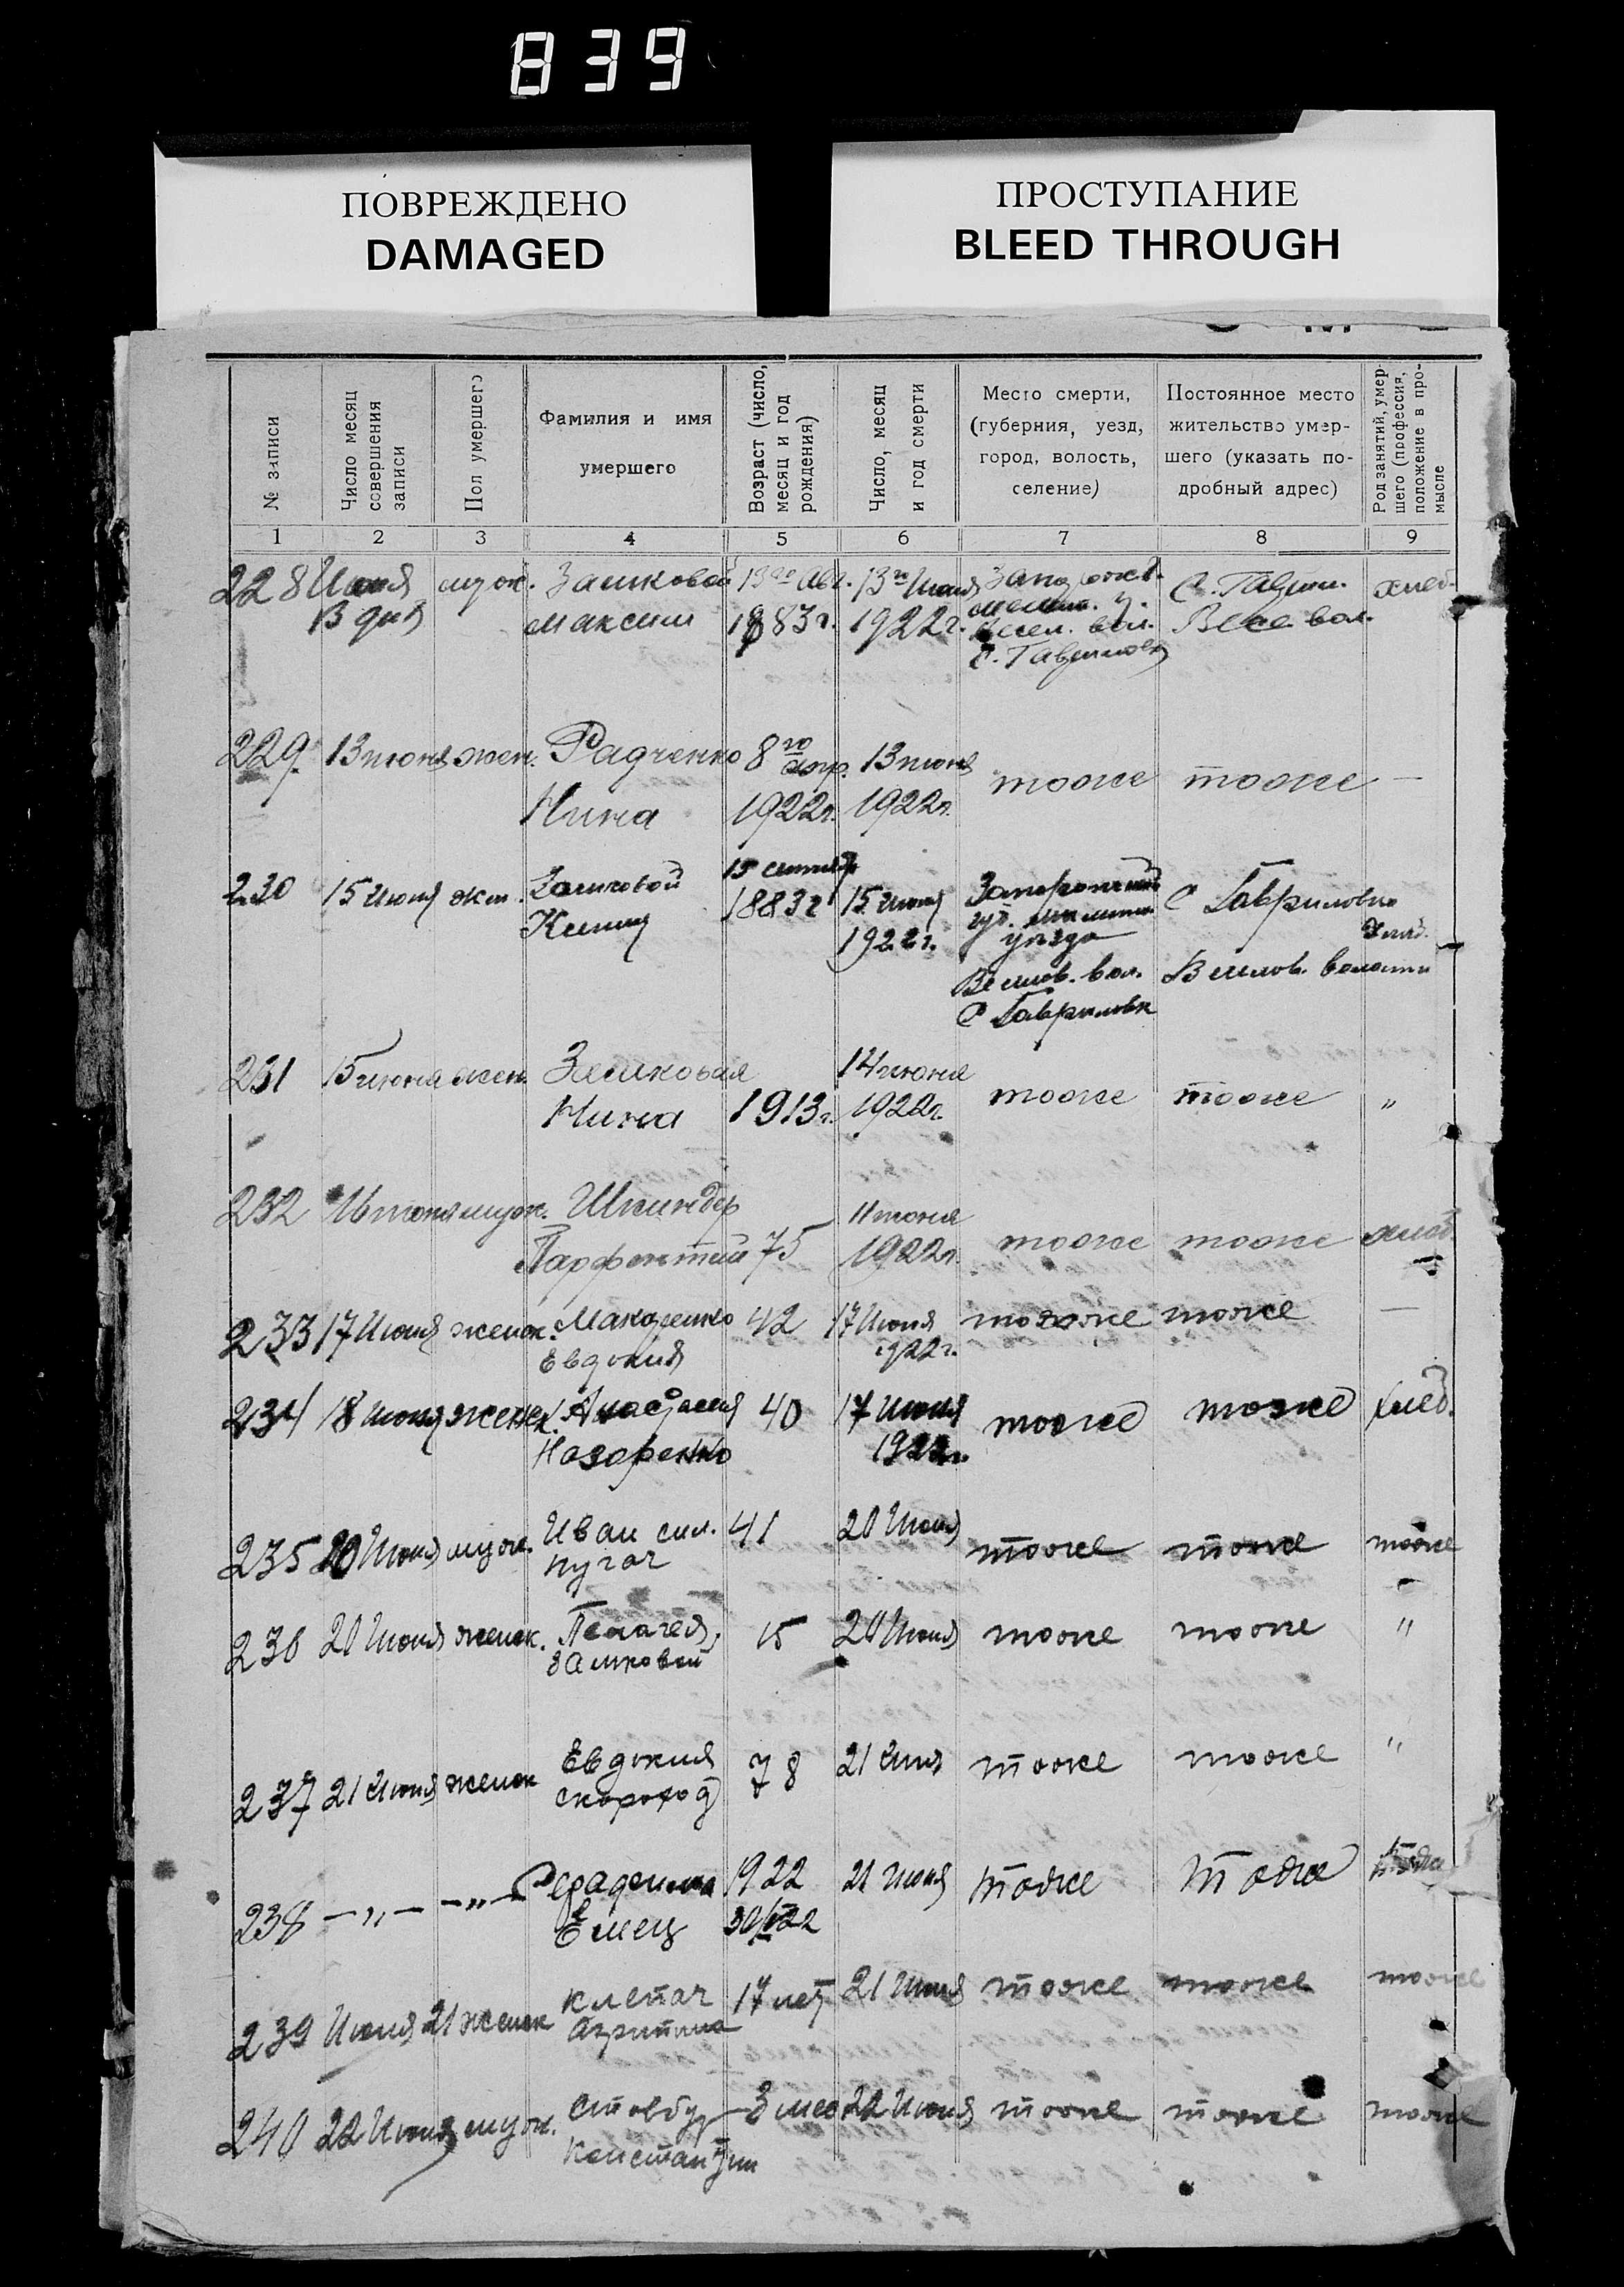 839
ПОВРЕЖДЕНО
DAMAGED
ПРОСТУПАНИЕ
BLEED THROUGH
№ записи
Число месяц совершения записи
Пол умершего
Фамилия и имя умершего
Возраст (число, месяц и год рождения)
Число, месяц и год смерти
Место смерти, (губерния, уезд, город, волость, селение)
Постоянное место жительство умершего (указать подробный адрес)
Род занятий, умершего (профессия, положение в промысле
1 2 3 4 5 6 7 8 9
228 Июня муж. Замковой 13го Авг. 13го Июня Запорожс. С. Гаврил. хлеб.
13 дня Максим 1883 г. 1922 г. мелит. у. Весел. вол.
Весел. вол.
С. Гавриловка
229. 13 июня жен. Радченко 8го апр. 13 июня тоже тоже —
Нина 1922 г. 1922 г.
230 15 Июня жен. Замковой 15 сентяб 15 Июня Запорожской С Гавриловка
Ксения 1883 г 1922 г. губ. мелит. хлеб.
уезда
Веселов. вол. Веселов. волости
С Гавриловк
231 15 июня жен. Замковая 14 июня тоже тоже "
Нина 1913 г. 1922 г.
232 16 июня муж. Шкиндер 11 июня
Парфентий 75 1922 г. тоже тоже хлеб.
233 17 Июня женск. Макаренко 42 17 Июня тоже тоже —
Евдокия 1922 г.
234 18 Июня женск. Анастасия 40 17 Июня тоже тоже хлеб.
Назаренко 1922 г.
235 20 Июня муж. Иван сил. 41 20 Июня тоже тоже тоже
пугач
236 20 Июня женск. Пелагея, 15 20 Июня тоже тоже "
замковой
237 21 Июня женск Евдокия 78 21 Июня тоже тоже "
скороход
238 —„— —„— Серафима 1922 21 Июня тоже тоже тоже
Емец
239 Июня 21 женск клепач 17 лет 21 Июня тоже тоже тоже
240 22 Июня муж. стовбур 3 мес 22 Июня тоже тоже тоже
Константин